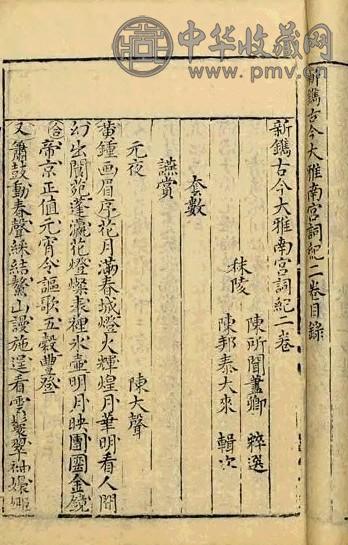 中华收藏网
www.pmv.cn
新鐫古今大雅南宮詞紀二卷目錄
新鐫古今大雅南宮詞紀二卷
秣陵
陳所聞藎卿 粹選
陳邦泰大來 輯次
套數
讌賞
元夜 陳大聲
黃鍾画眉序花月滿春城燈火輝煌月華明看人間
幻出閬苑蓬瀛花燈燦表裡氷壺明月映團圞金鏡
合帝京正值元宵令謳歌五穀豊登
又簫鼓動春聲綵結鰲山謾施逞看雲鬟翠袖嬝娜